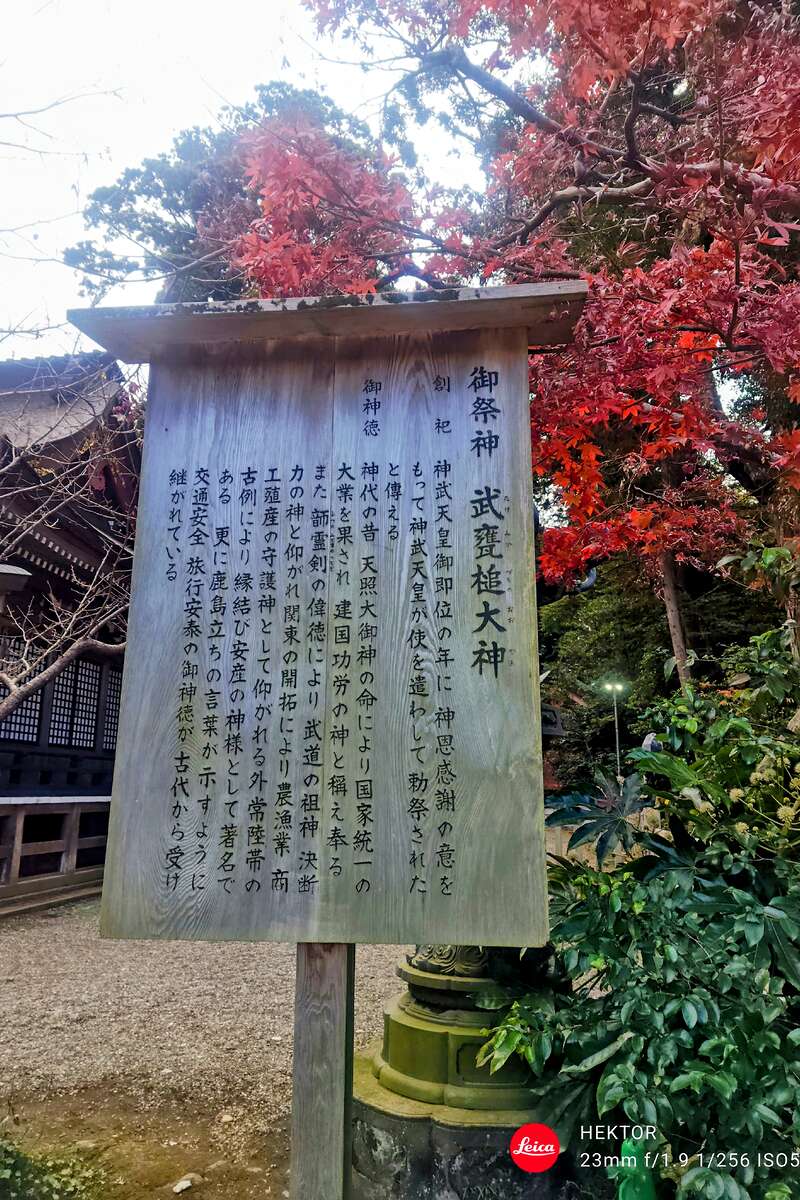 御祭神 武甕槌大神
たけ みか づち おお かみ
創祀 神武天皇御即位の年に 神恩感謝の意を
もって神武天皇が使を遣わして勅祭された
と傳える
御神徳 神代の昔 天照大御神の命により国家統一の
大業を果され 建国功労の神と稱え奉る
また 韴霊剣の偉徳により 武道の祖神 決断
力の神と仰がれ関東の開拓により農漁業 商
工殖産の守護神として仰がれる外常陸帯の
古例により 縁結び安産の神様として著名で
ある 更に鹿島立ちの言葉が示すように
交通安全 旅行安泰の御神徳が 古代から受け
継がれている
Leica
HEKTOR
23mm f/1.9 1/256 ISO5